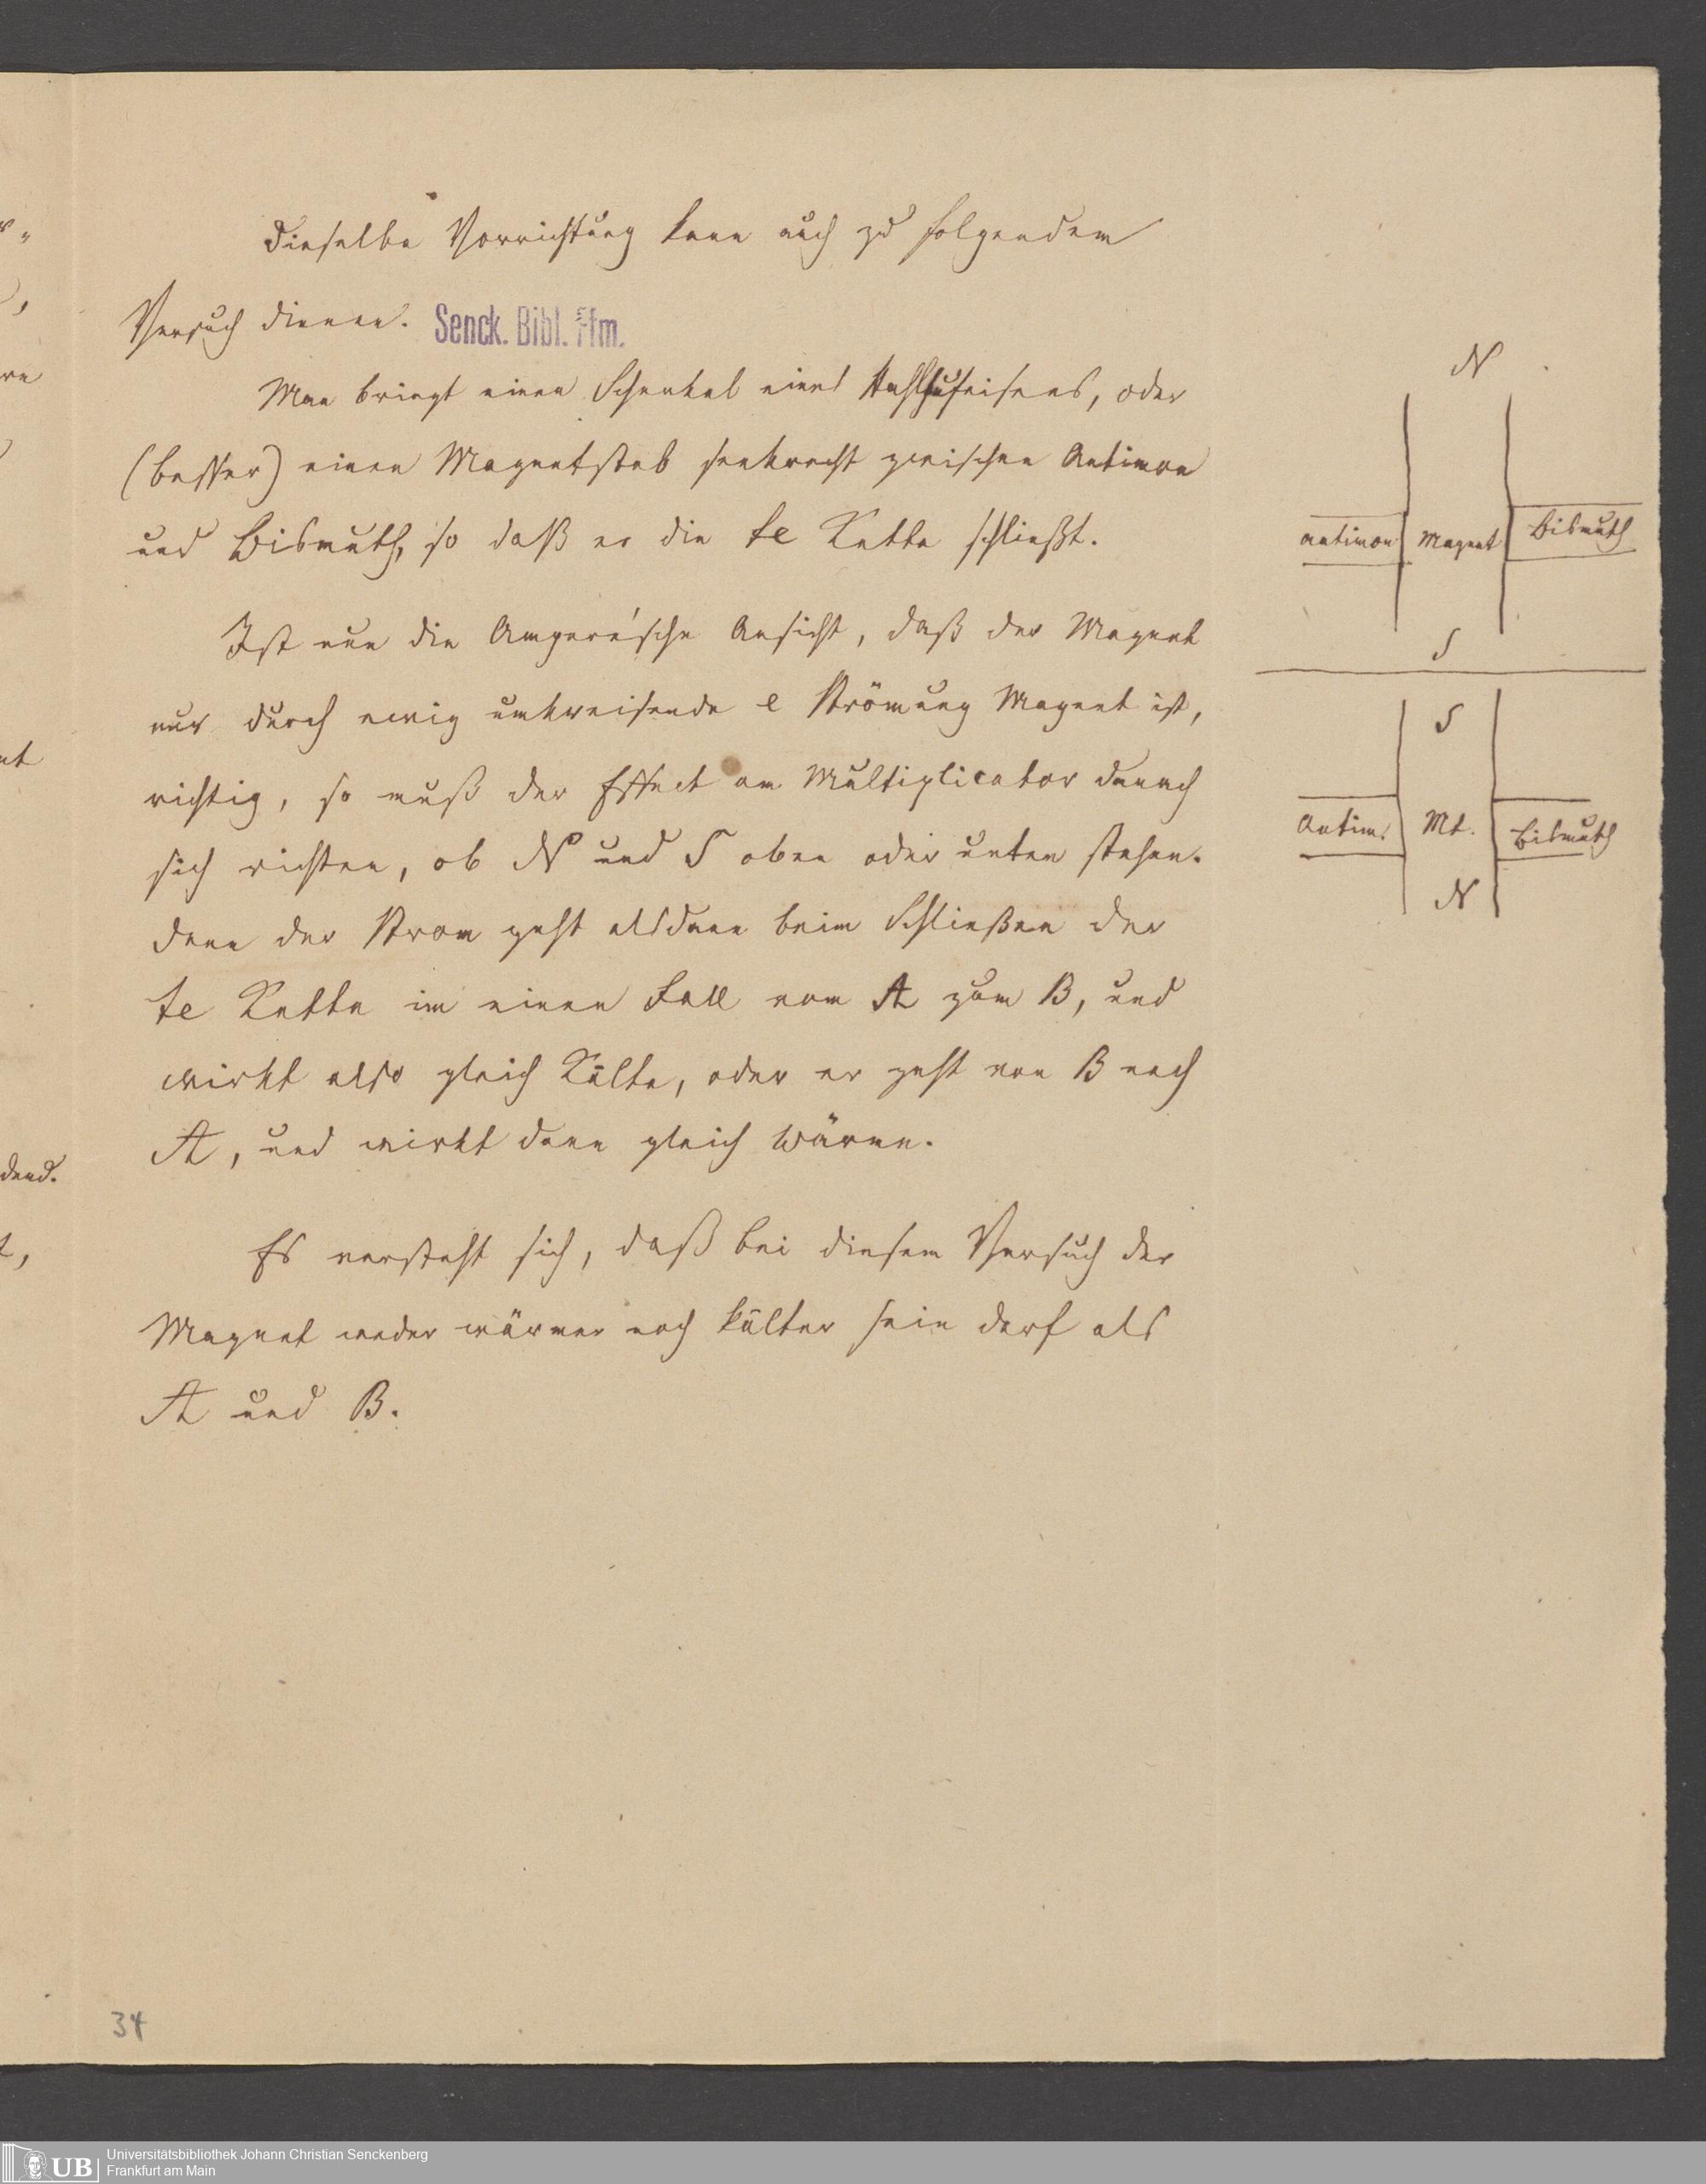 Dieselbe Vorrichtung kann auch zu folgendem
Versuch dienen.
Senck. Bibl. Ffm.
Man bringt einen Schenkel eines Stahlhufeisens, oder
(besser) einen Magnetstab senkrecht zwischen Antimon
und Bismuth, so daß er die te Kette schließt.
Ist nun die Ampere'sche Ansicht, daß der Magnet
nur durch ewig umkreisende e Strömung Magnet ist,
richtig, so muß der Effect am Multiplicator danach
sich richten, ob N und S oben oder unten stehen.
denn der Strom geht alsdann beim Schließen der
te Kette im einen Fall vom A zum B, und
wirkt also gleich Kälte, oder er geht von B nach
A, und wirkt dann gleich Wärme.
Es versteht sich, daß bei diesem Versuch der
Magnet weder wärmer noch kälter sein darf als
A und B.
N
Antimon Magnet Bismuth
S
S
Antim. Mt. Bismuth
N
nt
dend.
t,
34
UB Universitätsbibliothek Johann Christian Senckenberg
Frankfurt am Main